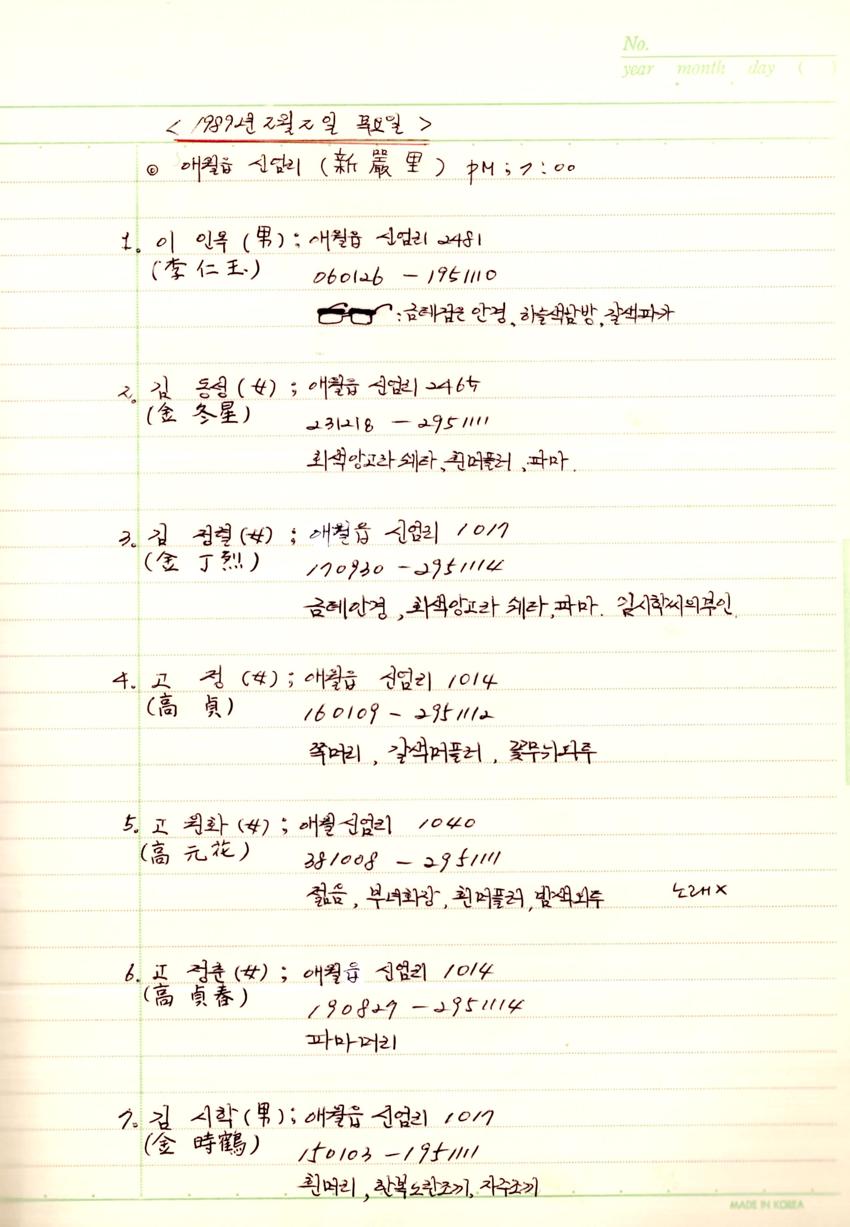 No.
year month day ( )
< 1989년 2월 2일 목요일 >
◎ 애월읍 신엄리 (新嚴里) PM ; 7:00
1. 이 인옥 (男) ; 애월읍 신엄리 2481
(李仁玉)
060126 - 1951110
: 금테검은안경, 하늘색남방, 갈색파카
2. 김 동성 (女) ; 애월읍 신엄리 2465
(金 冬星)
231218 - 2951111
회색앙고라 쉐타, 흰머플러, 파마.
3. 김 정렬 (女) ; 애월읍 신엄리 1017
(金 丁烈)
170930 - 2951114
금테안경, 회색앙고라 쉐타, 파마. 김시학씨의부인.
4. 고 정 (女) ; 애월읍 신엄리 1014
(高 貞)
160109 - 2951112
쪽머리, 갈색머플러, 꽃무늬외투
5. 고 원화 (女) ; 애월신엄리 1040
(高 元花)
381008 - 2951111
젊음, 부녀회장, 흰머플러, 밤색외투 노래×
6. 고 정춘 (女) ; 애월읍 신엄리 1014
(高 貞春)
190827 - 2951114
파마머리
7. 김 시학 (男) ; 애월읍 신엄리 1017
(金 時鶴)
150103 - 1951111
흰머리, 한복노란조끼, 자주조끼
MADE IN KOREA